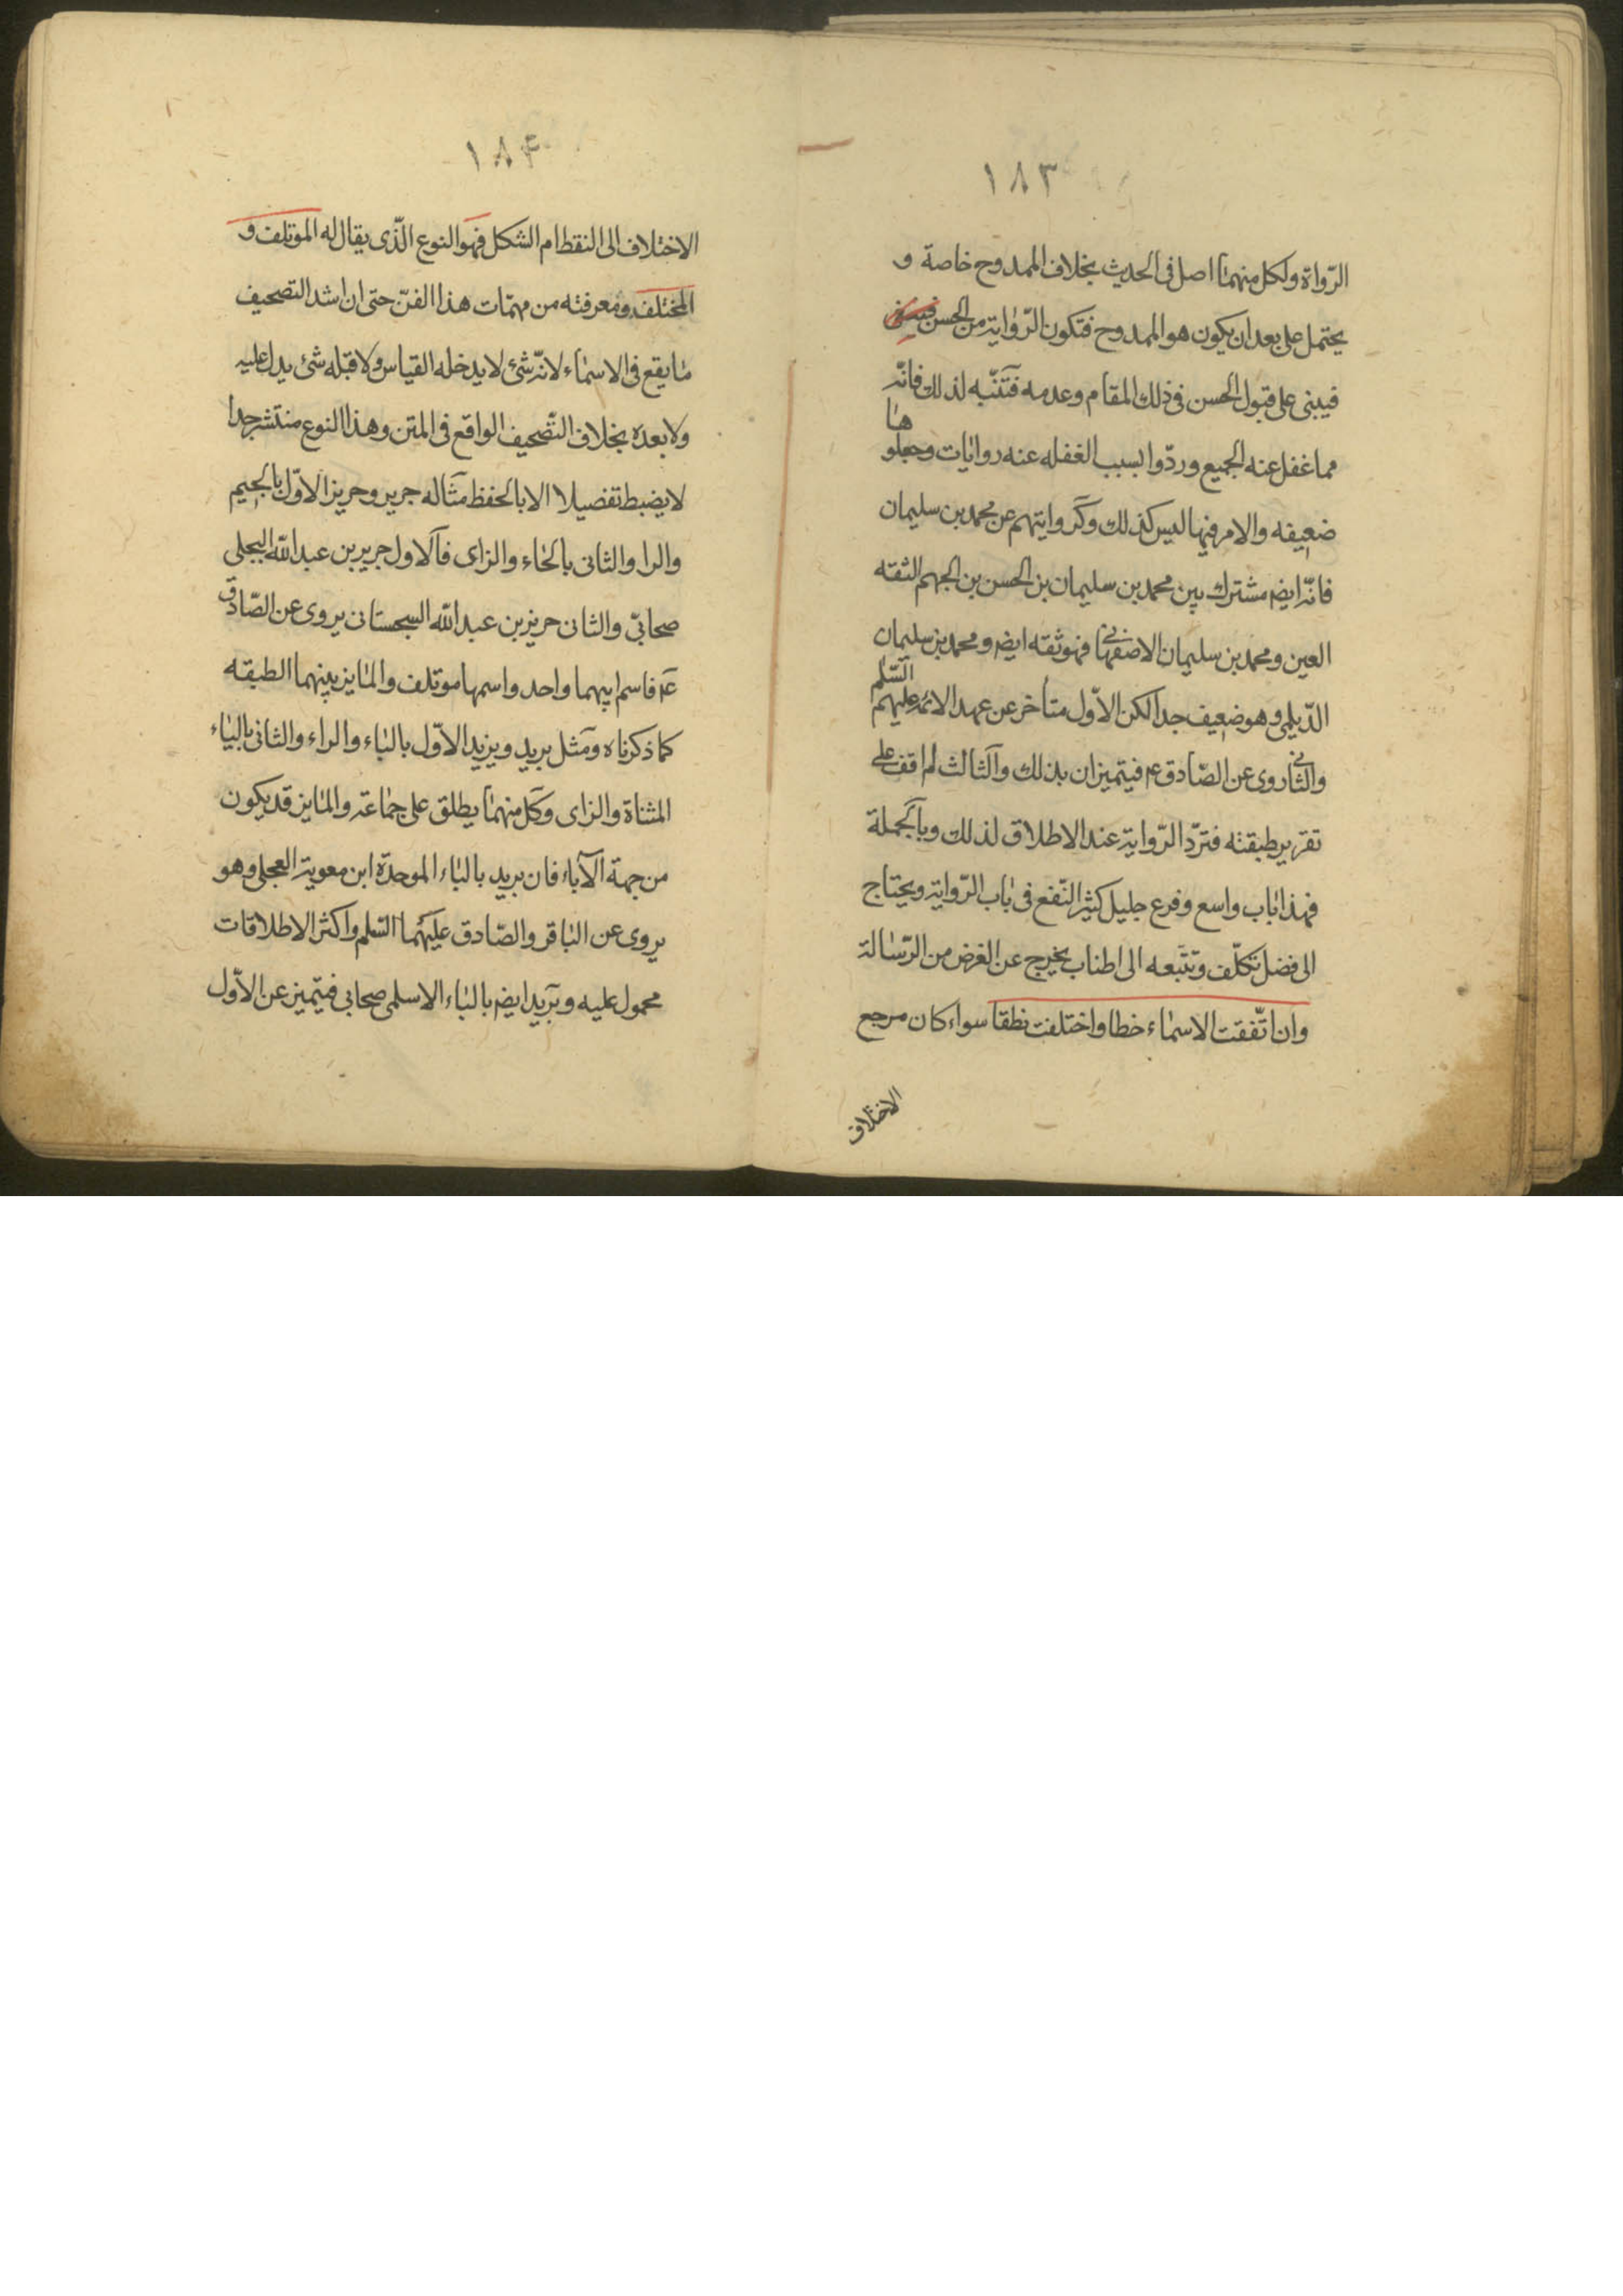 ١٨٣
الرّواة ولكل منهما اصل فى الحديث بخلاف الممدوح خاصة و
يحتمل على بعد ان يكون هو الممدوح فتكون الرّواية من الحسن
فيبنى على قبول الحسن فى ذلك المقام وعدمه فتنبّه لذلك فانّه
مما غفل عنه الجميع وردّوا بسبب الغفله عنه روايات وجعلوها
ضعيفه والامر فيها ليس كذلك وكروايتهم عن محمد بن سليمان
فانّه ايضا مشترك بين محمد بن سليمان بن الحسن بن الجهم الثقه
العين ومحمد بن سليمان الاصفهانى فهو ثقه ايضا ومحمد بن سليمان
الدّيلمى وهو ضعيف جدا لكن الاوّل متأخر عن عهد الائمه عليهم السّلم
والثانى روى عن الصّادق ع فيتميزان بذلك والثالث لم اقف على
تقرير طبقته فتردّ الرّواية عند الاطلاق لذلك وبالجملة
فهذا باب واسع وفرع جليل كثير النّفع فى باب الرّواية ويحتاج
الى فضل تكلّف وتتبعه الى اطناب يخرج عن الغرض من الرّسالة
وان اتّفقت الاسماء خطا واختلفت نطقا سواء كان مرجع
الاختلاف
١٨۴
الاختلاف الى النقط ام الشكل فهو النوع الّذى يقال له المؤتلف و
المختلف ومعرفته من مهمّات هذا الفنّ حتى ان اشد التصحيف
ما يقع فى الاسماء لانّه شئ لا يدخله القياس ولا قبله شئ يدل عليه
ولا بعده بخلاف التّصحيف الواقع فى المتن وهذا النوع منتشر جدا
لا يضبط تفصيلا الا بالحفظ مثاله جرير وحريز الاوّل بالجيم
والرا والثانى بالحاء والزاى فالاول جرير بن عبد الله البجلى
صحابىّ والثانى حريز بن عبد الله السجستانى يروى عن الصّادق
ع فاسم ابيهما واحد واسمهما موتلف والمايز بينهما الطبقه
كما ذكرناه ومثل بريد ويزيد الاوّل بالباء والراء والثانى بالياء
المثناة والزاى وكل منهما يطلق على جماعة والمايز قد يكون
من جهة الآباء فان بريد بالباء الموحدّة ابن معوية العجلى وهو
يروى عن الباقر والصّادق عليهما السّلم واكثر الاطلاقات
محمول عليه وبريد ايضا بالباء الاسلمى صحابى فيتميز عن الاوّل